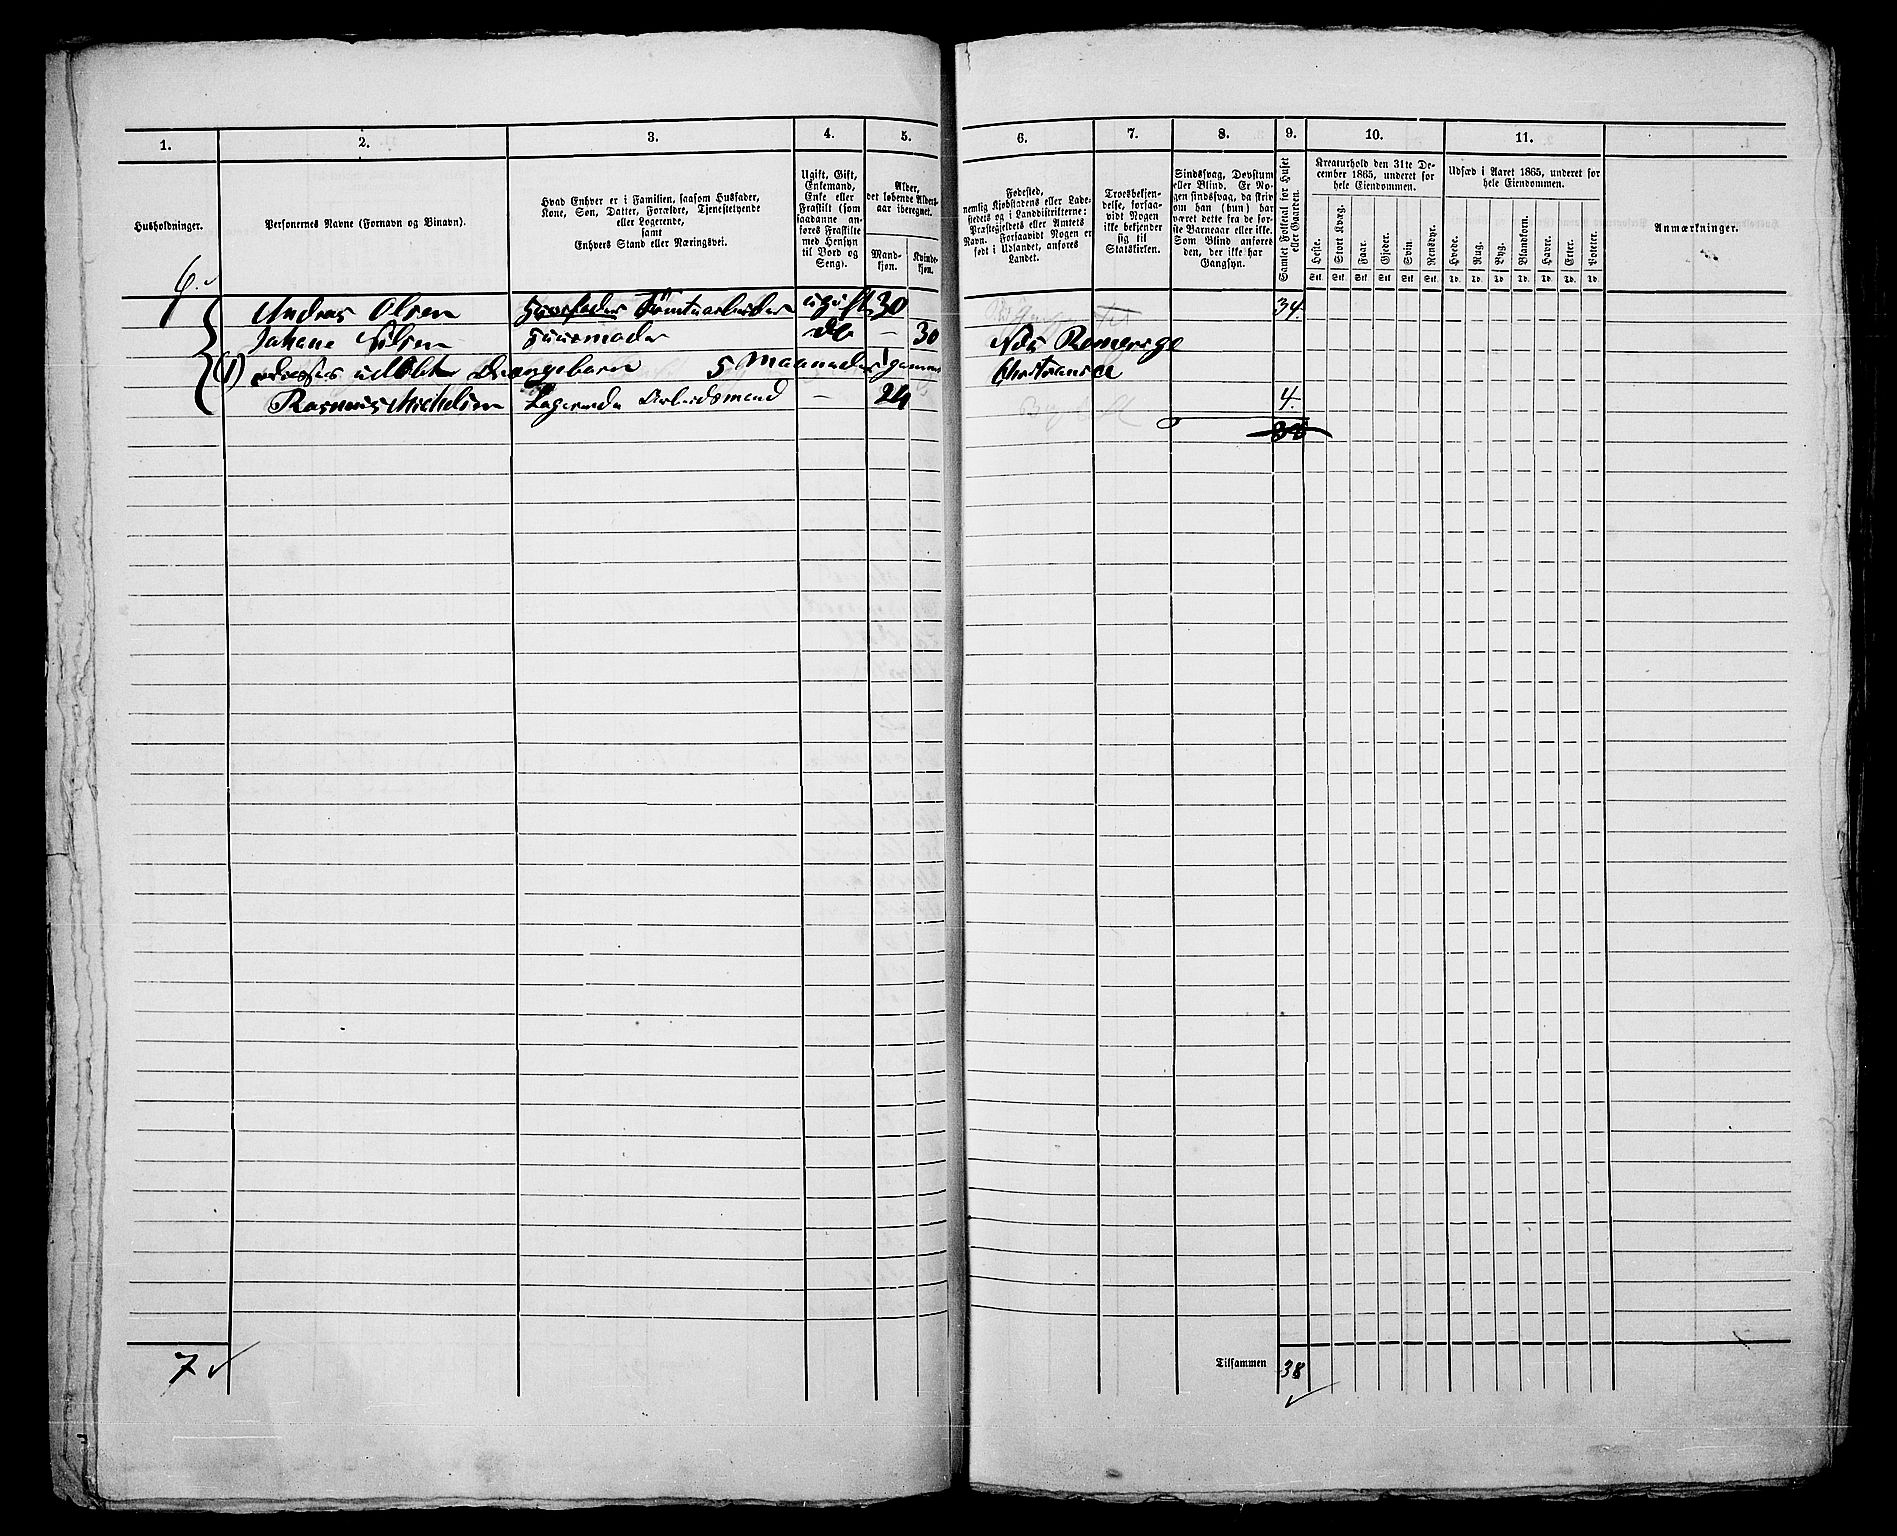 1.
2.
3.
4.
5.
6.
7.
8.
9.
10.
11.
Husholdninger.
Personernes Navne (Fornavn og Binavn).
Hvad Enhver er i Familien, saasom Husfader,
Kone, Søn, Datter, Forældre, Tjenestetyende
eller Logerende,
samt
Enhvers Stand eller Næringsvei.
Ugift, Gift,
Enkemand,
Enke eller
Fraskilt (som
saadanne an-
føres Fraskilte
med Hensyn
til Bord og
Seng).
Alder,
det løbende Alders-
aar iberegnet.
Mand-
kjøn.
Kvinde-
kjøn.
Fødested,
nemlig Kjøbstadens eller Lade-
stedets og i Landdistrikterne:
Præstegjeldets eller Annexets
Navn. Forsaavidt Nogen er
født i Udlandet, anføres
Landet.
Troesbekjen-
delse, forsaa-
vidt Nogen
ikke bekjender
sig til
Statskirken.
Sindssvag, Døvstum
eller Blind. Er No-
gen sindssvag, da skriv
om han (hun) har
været dette fra de før-
ste Barneaar eller ikke.
Som Blind anføres
den, der ikke har
Gangsyn.
Samlet Folketal for Huset
eller Gaarden.
Kreaturhold den 31te De-
cember 1865, underet for
hele Eiendommen.
Heste.
Stort Kvæg.
Faar.
Gjeder.
Svin.
Rensdyr.
Stk. Stk. Stk. Stk. Stk. Stk.
Udsæd i Aaret 1865, underet for
hele Eiendommen.
Hvede.
Rug.
Byg.
Blandkorn.
Havre.
Erter.
Poteter.
Td. Td. Td. Td. Td. Td. Td.
Anmærkninger.
Andreas Olsen Huusfader ugift 30 34.
Johane Olsen Huusmoder do — 30 Næs Romerige
(1) udøbt Drængebarn 5 Maaneder gammel Christiania
Rasmus Michelsen Logerende Arbeidsmand — 24 4.
38
7 ✓
Tilsammen 38
✓